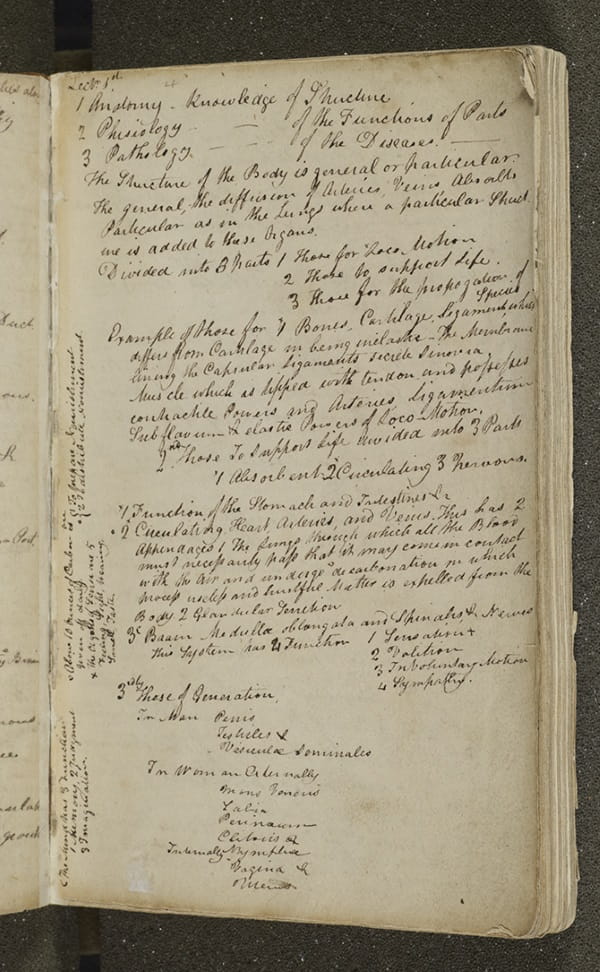 Lect. 1st
1 Anatomy - Knowledge of Structure
2 Phisiology - - of the Functions of Parts
3 Pathology - - of the Diseases.
The Structure of the Body is general or particular.
The general, the diffusion of Arteries, Veins Absorbts
Particular as in the Lungs where a particular Struct
ure is added to these Organs.
Divided into 3 Parts 1 Those for Loco Motion
2 Those to support Life.
3 Those for the propogation of
Species
Example of those for 1 Bones, Cartilage, Ligament which
differs from Cartilage in being inelastic - The Membrane
lining the Capsular Ligaments secrete Sinovia.
Muscle which is tipped with tendon and possesses
contractile Powers and Arteries, Ligamentum
Subflavum & elastic Powers of Loco-Motion.
2nd Those To Support Life divided into 3 Parts
1 Absorbent 2 Circulating 3 Nervous.
1 Function of the Stomach and Intestines &c
2 Circulating, Heart Arteries, and Veins. This has 2
Appendages 1 The Lungs through which all the Blood
must necessarily pass that it may come in contact
with the Air and undergo decarbonation in which
process useless and hurtful Matter is expelled from the
Body 2 Glandular Function
3 Brain Medulla oblongata and Spinalis & Nerves
This System has 4 Function 1 Sensation
2 Volition
3 InVoluntary Motion
4 Sympathy.
3rdly Those of Generation.
In Man Penis
Testicles &
Vesiculæ Seminales
In Woman Externally
Mons Veneris
Labia
Perinaeum
Clitoris &
Internally Nymphae
Vagina &
Uterus
1 To prepare Nourishment
2 To distribute Nourishment
Ounces of Carbon are
given off daily
the Organs of Sense are 5
Feeling, Sight, hearing,
Smell, Taste.
The Mind has 3 Function
1 Memory, 2 Judgment
3 Imagination.
Duct